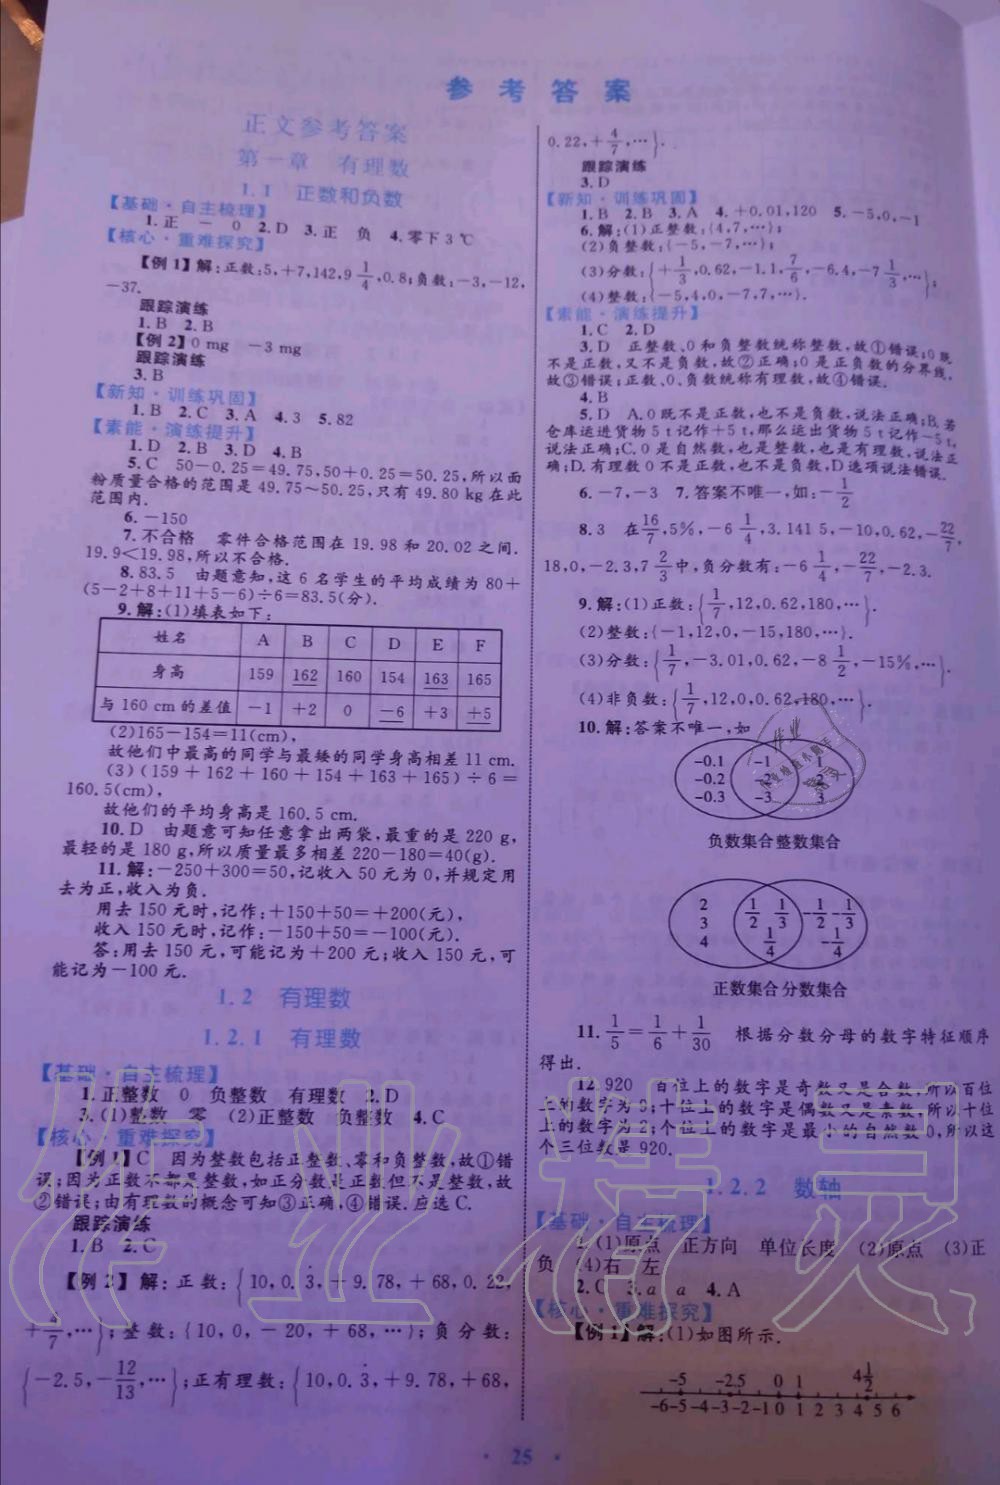 参考答案
正文参考答案
第一章 有理数
1.1 正数和负数
【基础·自主梳理】
1.正 — 0 2.D 3.正 负 4.零下3℃
【核心·重难探究】
【例1】解:正数:5,+7,142,9 1/4,0.8;负数:-3,-12,
-37.
跟踪演练
1.B 2.B
【例2】0 mg -3 mg
跟踪演练
3.B
【新知·训练巩固】
1.B 2.C 3.A 4.3 5.82
【素能·演练提升】
1.D 2.B 3.D 4.B
5.C 50-0.25=49.75,50+0.25=50.25,所以面
粉质量合格的范围是49.75~50.25,只有49.80 kg在此
范围内.
6.-150
7.不合格 零件合格范围在19.98和20.02之间.
19.9<19.98,所以不合格.
8.83.5 由题意知,这6名学生的平均成绩为80+
(5-2+8+11+5-6)÷6=83.5(分).
9.解:(1)填表如下:
姓名 A B C D E F
身高 159 162 160 154 163 165
与160 cm的差值 -1 +2 0 -6 +3 +5
(2)165-154=11(cm),
故他们中最高的同学与最矮的同学身高相差11 cm.
(3)(159+162+160+154+163+165)÷6=
160.5(cm),
故他们的平均身高是160.5 cm.
10.D 由题意可知任意拿出两袋,最重的是220 g,
最轻的是180 g,所以质量最多相差220-180=40(g).
11.解:-250+300=50,记收入50元为0,并规定用
去为正,收入为负.
用去150元时,记作:+150+50=+200(元),
收入150元时,记作:-150+50=-100(元).
答:用去150元,可能记为+200元;收入150元,可
能记为-100元.
1.2 有理数
1.2.1 有理数
【基础·自主梳理】
1.正整数 0 负整数 有理数 2.D
3.(1)整数 零 (2)正整数 负整数 4.C
【核心·重难探究】
【例1】C 因为整数包括正整数、零和负整数,故①错
误;因为正数不都是整数,如正分数是正数但不是整数,故
②错误;由有理数的概念可知③正确,④错误.应选C.
跟踪演练
1.B 2.C
【例2】解:正数:{10,0.3̇,+9.78,+68,0.22,
+4/7,…};整数:{10,0,-20,+68,…};负分数:
{-2.5,-12/13,…};正有理数:{10,0.3̇,+9.78,+68,
0.22,+4/7,…}.
跟踪演练
3.D
【新知·训练巩固】
1.B 2.B 3.A 4.+0.01,120 5.-5,0,-1
6.解:(1)正整数:{4,7,…};
(2)负整数:{-5,-7,…};
(3)分数:{+1/3,0.62,-1.1,7/6,-6.4,-7 1/3,…};
(4)整数:{-5,4,0,-7,7,…}.
【素能·演练提升】
1.C 2.D
3.D 正整数、0和负整数统称整数,故①错误;0既
不是正数,又不是负数,故②正确;0是正负数的分界线,
故③错误;正数、0、负数统称有理数,故④错误.
4.B
5.D A.0既不是正数,也不是负数,说法正确;B.若
仓库运进货物5 t记作+5 t,那么运出货物5 t记作-5 t,
说法正确;C.0是自然数,也是整数,也是有理数,说法正
确;D.有理数0不是正数,也不是负数,D选项说法错误.
6.-7,-3 7.答案不唯一,如:-1/2
8.3 在16/7,5%,-6 1/4,3.141 5,-10,0.62,-22/7,
18,0,-2.3,7 2/3中,负分数有:-6 1/4,-22/7,-2.3.
9.解:(1)正数:{1/7,12,0.62,180,…}.
(2)整数:{-1,12,0,-15,180,…}.
(3)分数:{1/7,-3.01,0.62,-8 1/2,-15%,…}.
(4)非负数:{1/7,12,0,0.62,180,…}.
10.解:答案不唯一,如
-0.1 -1 1
-0.2 -2 2
-0.3 -3 3
负数集合 整数集合
2 1/2 1/3 -1/2 -1/3
3
4 1/4 -1/4
正数集合 分数集合
11.1/5=1/6+1/30 根据分数分母的数字特征顺序
得出.
12.920 百位上的数字是奇数又是合数,所以百位
上的数字为9;十位上的数字是偶数又是素数,所以十位
上的数字为2;个位上的数字是最小的自然数0,所以这
个三位数是920.
1.2.2 数轴
【基础·自主梳理】
1.(1)原点 正方向 单位长度 (2)原点 (3)正
负 (4)右 左
2.C 3.a a 4.A
【核心·重难探究】
【例1】解:(1)如图所示.
-5 -2.5 0 1 4 1/2
-6-5-4-3-2-1 0 1 2 3 4 5 6
· 25 ·
作业精灵